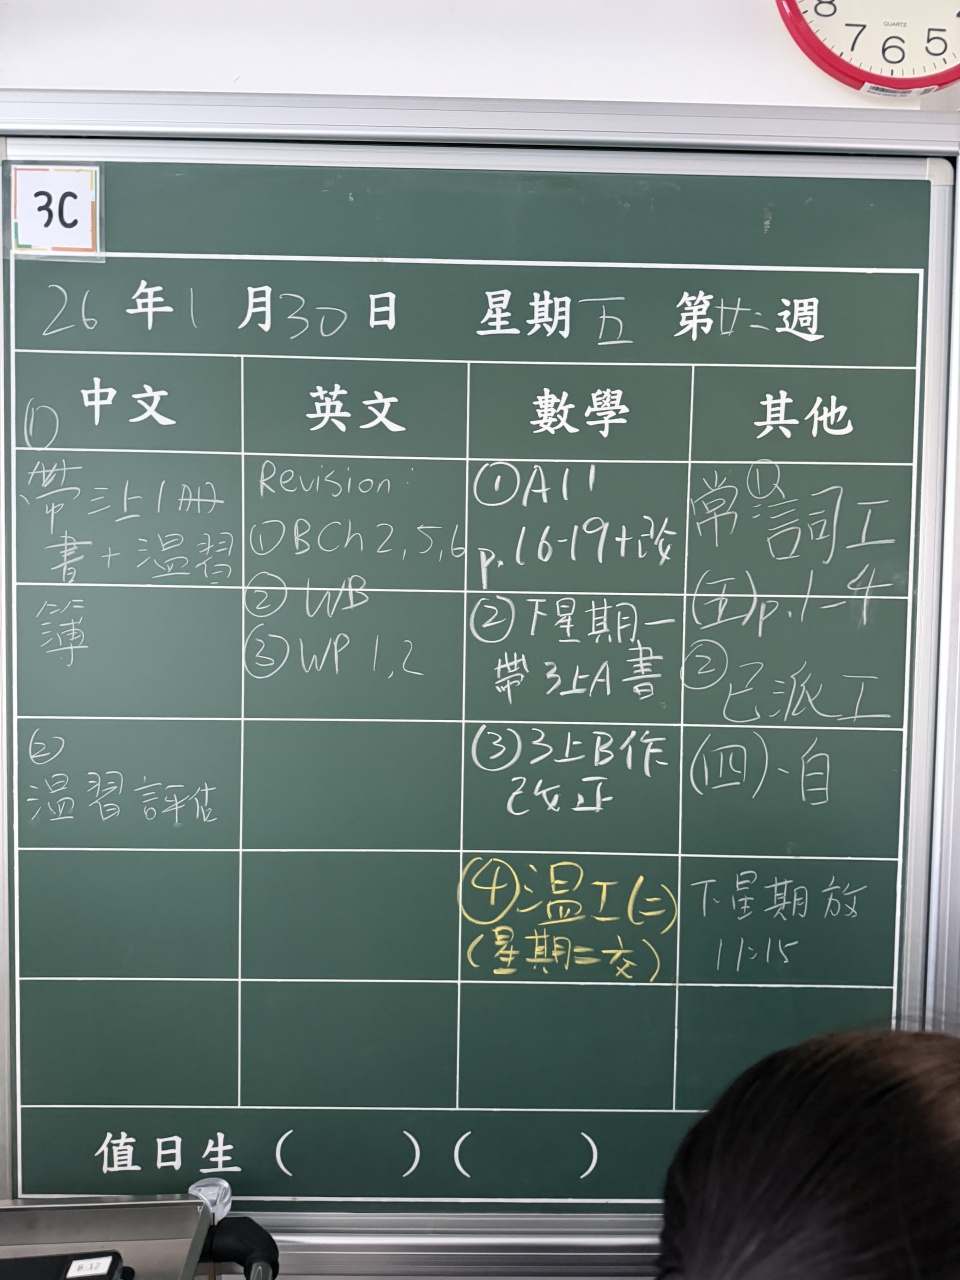 8 7 6 5
QUARTZ
3C
26年1月30日 星期五 第廿二週
中文 英文 數學 其他
①
帶三上1冊
書+溫習
簿
②
溫習評估
Revision:
①BCh2,5,6
②WB
③WP 1,2
①A11
p.16-19+改
②下星期一
帶3上A書
③3上B作
改正
④溫工(二)
(星期二交)
①
常詞工
(五)p.1-4
②已派工
(四)、自
下星期放
11:15
值日生( )( )